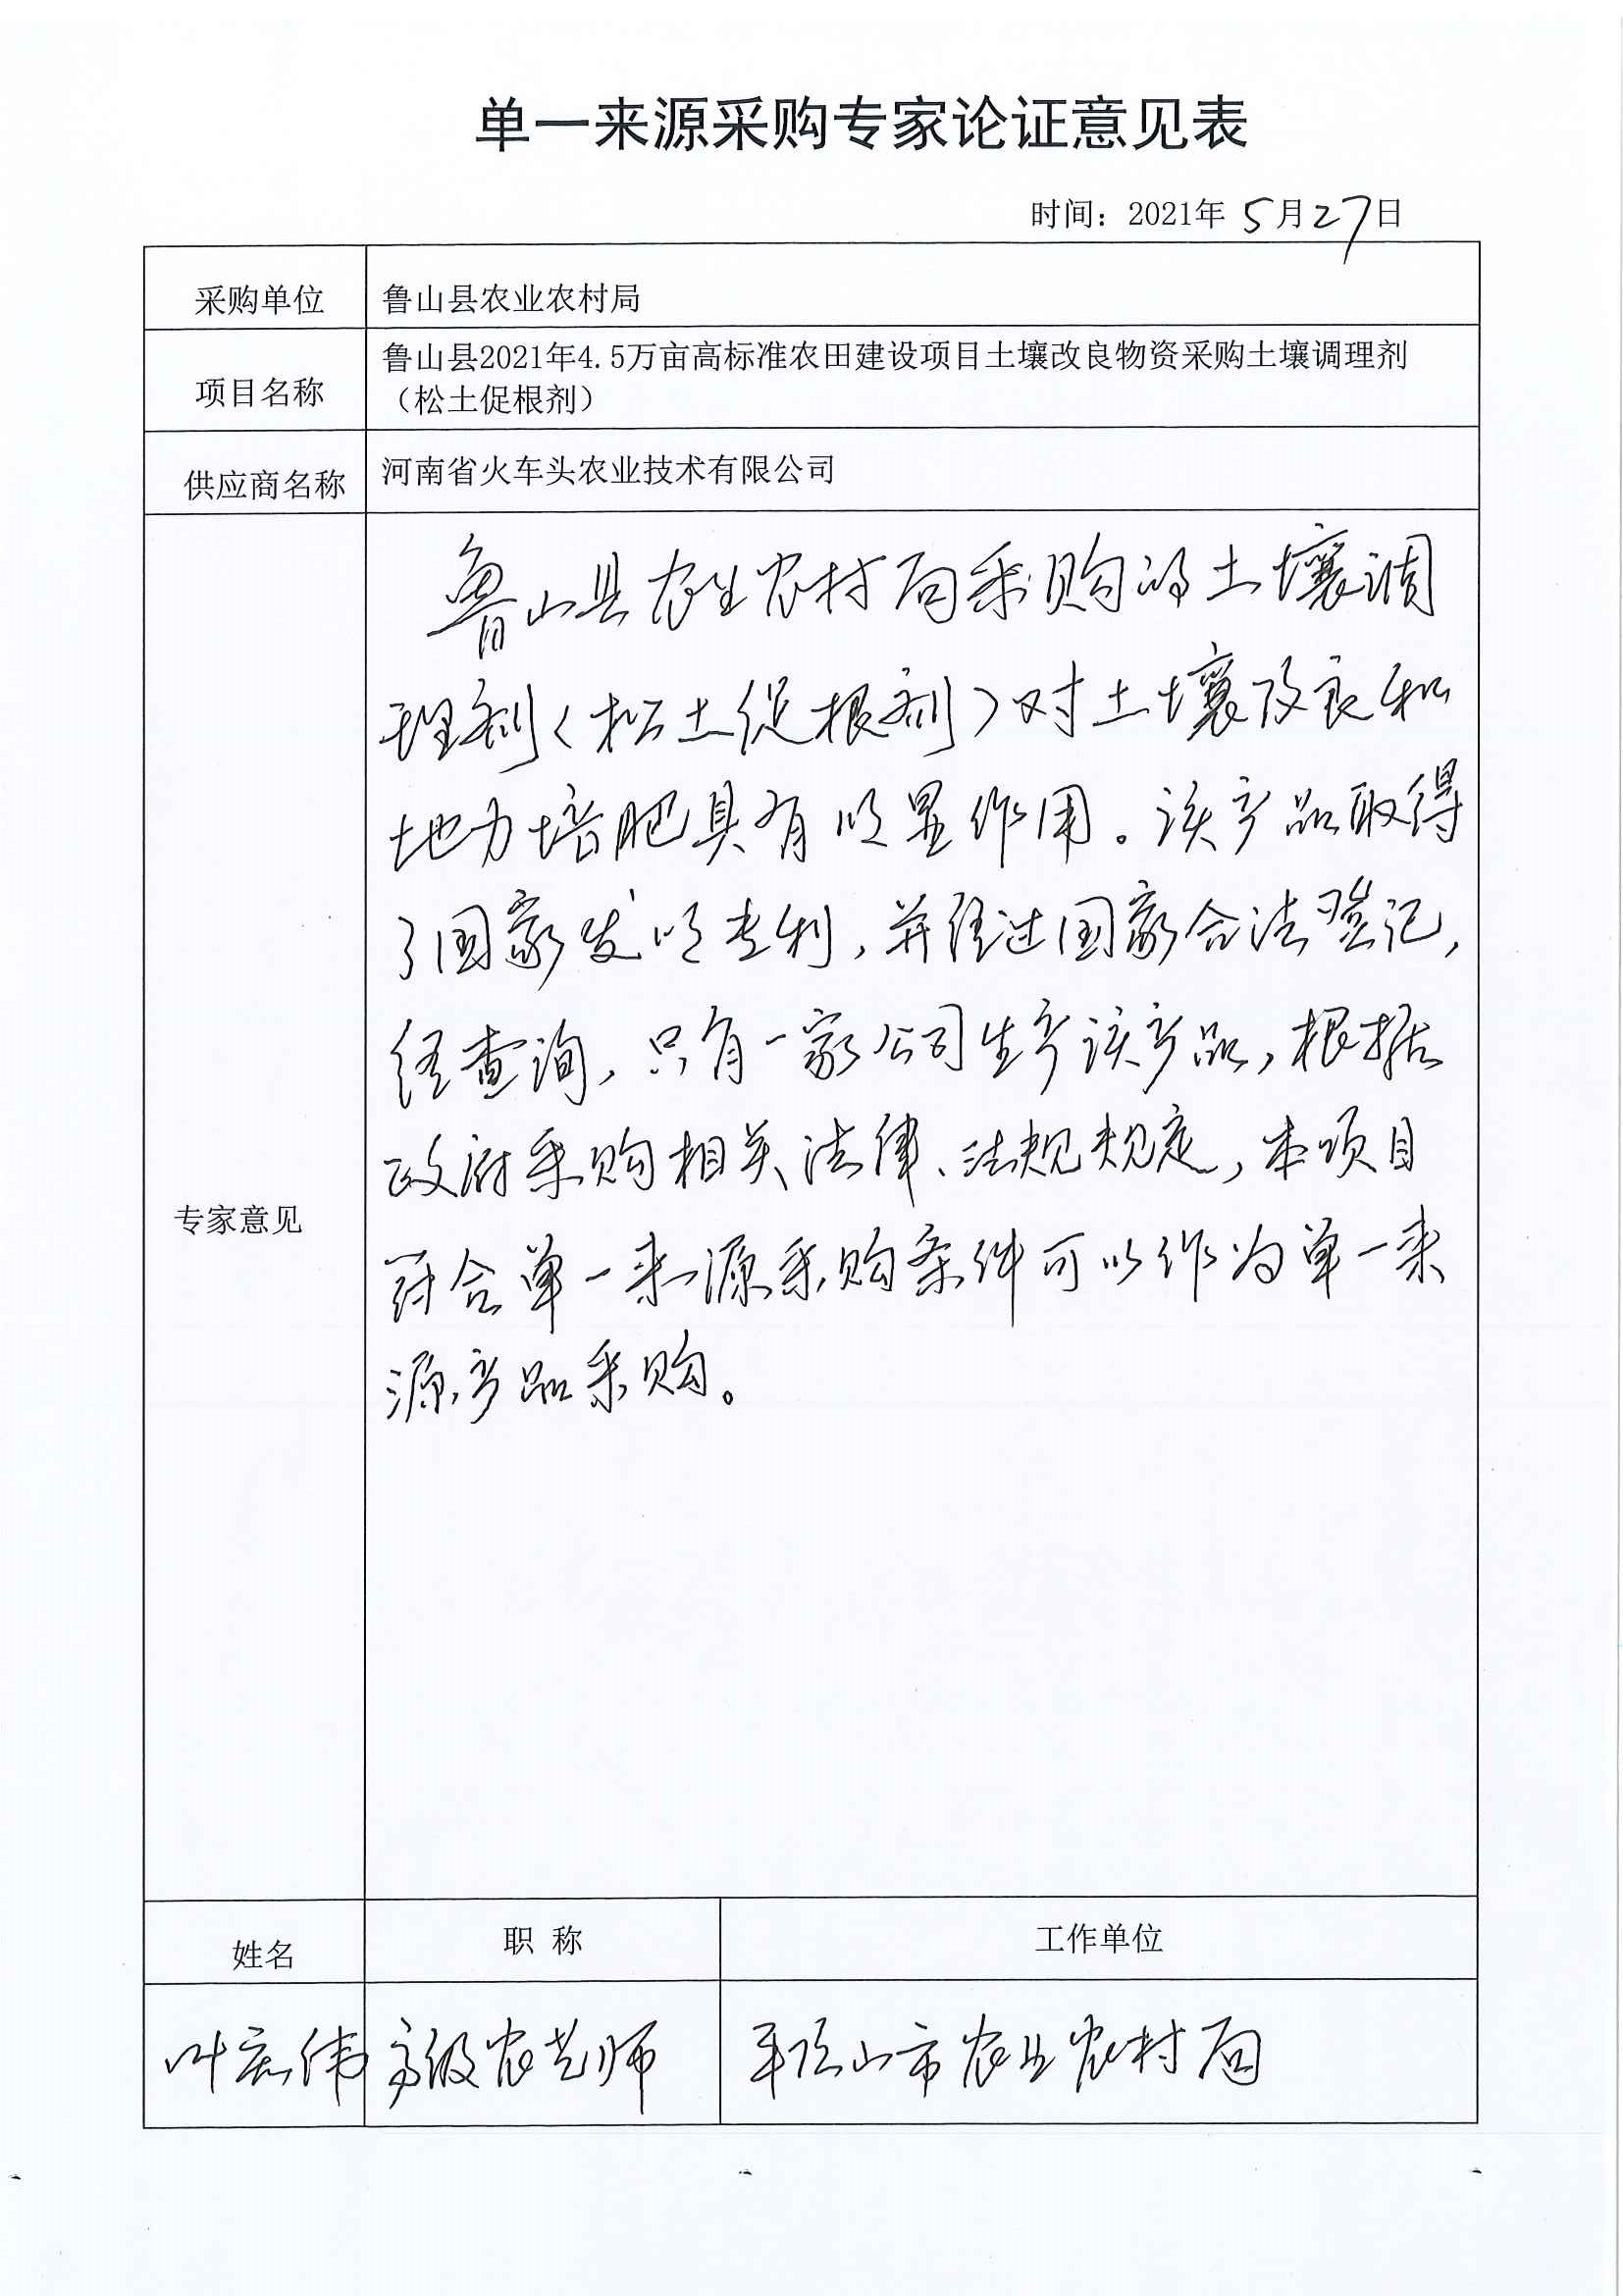 单一来源采购专家论证意见表
时间：2021年 5月27日
采购单位
鲁山县农业农村局
项目名称
鲁山县2021年4.5万亩高标准农田建设项目土壤改良物资采购土壤调理剂
（松土促根剂）
供应商名称
河南省火车头农业技术有限公司
专家意见
鲁山县农业农村局采购的土壤调
理剂（松土促根剂）对土壤改良和
地力培肥具有明显作用。该产品取得
了国家发明专利，并经过国家合法登记，
经查询，只有一家公司生产该产品，根据
政府采购相关法律、法规规定，本项目
符合单一来源采购条件可以作为单一来
源产品采购。
姓名
职 称
工作单位
叶宏伟
高级农艺师
平顶山市农业农村局